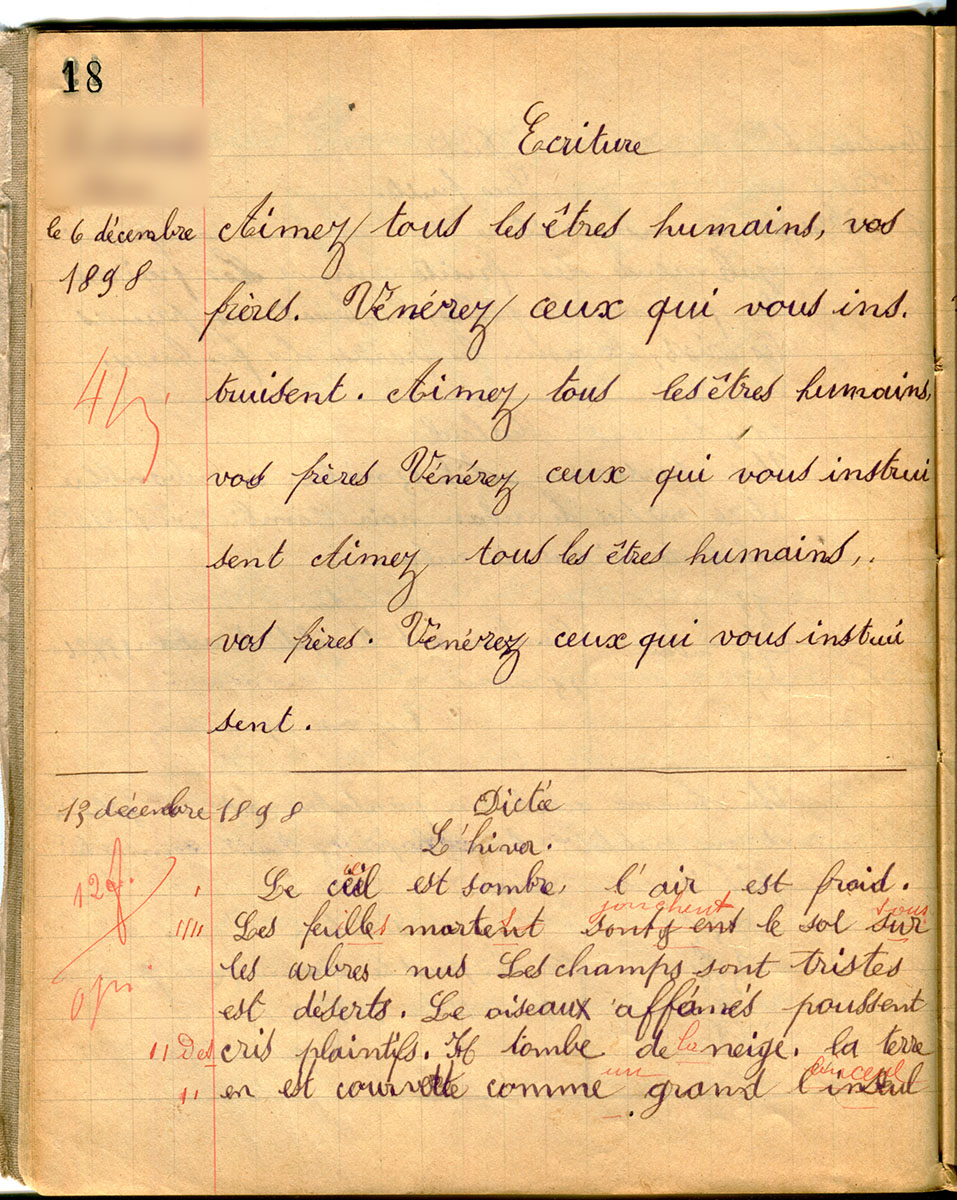 18
Ecriture
le 6 décembre
1898
Aimez tous les êtres humains, vos
frères. Vénérez ceux qui vous ins.
truisent. Aimez tous les êtres humains,
vos frères Vénérez ceux qui vous instrui
sent Aimez tous les êtres humains,.
vos frères. Vénérez ceux qui vous instrui
sent.
13 décembre 1898 Dictée
L'hiver.
12f.
Le ciel est sombre, l'air est froid.
jonchent sous
Les feuilles mortent sont ent le sol sur
les arbres nus Les champs sont tristes
est déserts. Le oiseaux affamés poussent
Des cris plaintifs. Il tombe de la neige. la terre
un linceul
en est courvette comme grand l'inseul